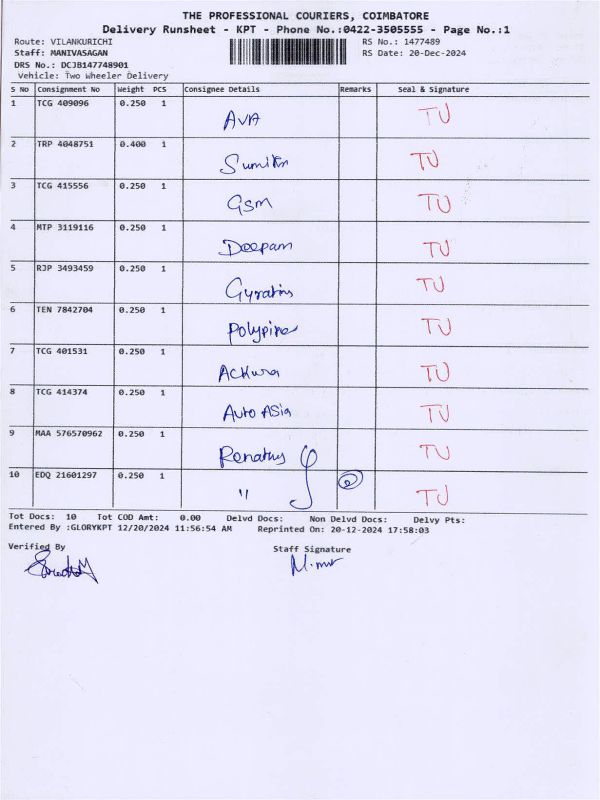 THE PROFESSIONAL COURIERS, COIMBATORE
Delivery Runsheet - KPT - Phone No.:0422-3505555 - Page No.:1
Route: VILANKURICHI RS No.: 1477489
Staff: MANIVASAGAN RS Date: 20-Dec-2024
DRS No.: DCJB147748901
Vehicle: Two Wheeler Delivery
S No Consignment No Weight PCS Consignee Details Remarks Seal & Signature
1 TCG 409096 0.250 1 AVA TU
2 TRP 4048751 0.400 1 TU
3 TCG 415556 0.250 1 GSM TU
4 MTP 3119116 0.250 1 Deepam TU
5 RJP 3493459 0.250 1 TU
6 TEN 7842704 0.250 1 Polypipe TU
7 TCG 401531 0.250 1 ACKura TU
8 TCG 414374 0.250 1 Auto ASia TU
9 MAA 576570962 0.250 1 Renatus TU
10 EDQ 21601297 0.250 1 " 2 TU
Tot Docs: 10 Tot COD Amt: 0.00 Delvd Docs: Non Delvd Docs: Delvy Pts:
Entered By :GLORYKPT 12/20/2024 11:56:54 AM Reprinted On: 20-12-2024 17:58:03
Verified By Staff Signature